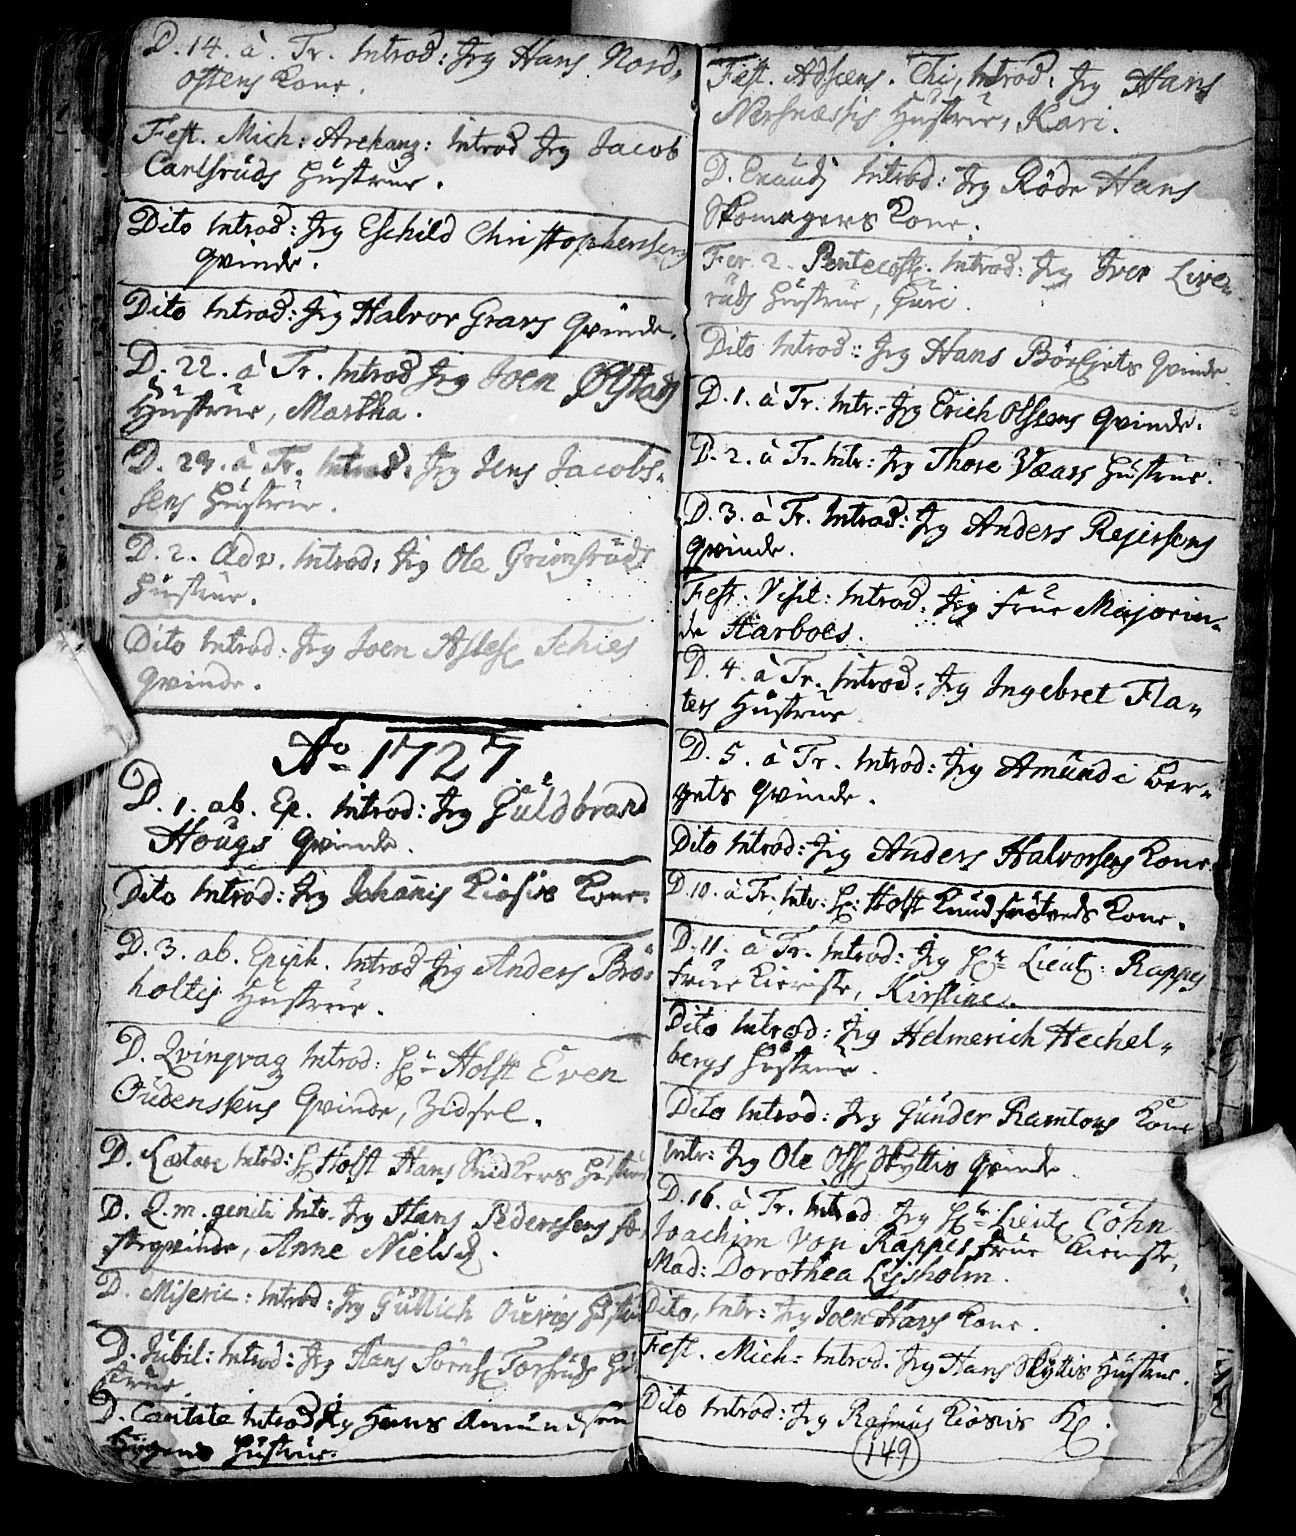 D. 14. à. Tr. Introd: Jeg Hans Nord-
ostens Kone.
Fest. Mich: Archang: Introd Jeg Jacob
Carlsrüds Hüstrue.
Dito Introd: Jeg Eschild Christophersens
Qvinde.
Dito Introd: Jeg Halvor Gravs Qvinde.
D. 22. à Tr. Introd Jeg Joen Ølstads
Hüstrue, Martha.
D. 24. à Tr. Introd: Jeg Jens Jacobs-
sens Hüstrue.
D. 2. Adv. Introd: Jeg Ola Grimsrüds
Hüstrue.
Dito Introd: Jeg Joen Schies
Qvinde.
Ao 1727
D. 1. ab. Ep. Introd: Jeg Güldbrand
Hougs Qvinde.
Dito Introd: Jeg Johanis Kiøsis Kone.
D. 3. ab. Epiph. Introd Jeg Anders Brö-
holtis Hüstrue.
D. Qvinqvag Introd: Hr Holst Even
Oudenssens Qvinde, Zidsel.
D. Lætare Introd: H Holst Hans Snidkers Hüstrue
D. Q. m. geniti Intr. Jeg Hans Pederssens
Anne Nielsd.
D. Miseric: Introd: Jeg Güllich
D. Jübil: Introd: Jeg Hans Sörens. Torsrüds Hü-
strue
D. Cantate Introd Jeg Hans Amundsen
Hüstrue.
Fest. Adscens. Chi, Introd: Jeg Hans
Nersnæssis Hüstrue, Kari.
D. Exaudi Introd: Jeg Røde Hans
Skomagers Kone.
Fer. 2. Pentecost. Introd: Jeg Iver Live-
rüds Hüstrue, Guri.
Dito Introd: Jeg Hans Qvinde.
D. 1. à Tr. Intr: Jeg Erich Olssens Qvinde.
D. 2. à Tr. Intr: Jeg Thore Væars Hüstrue.
D. 3. à Tr. Introd: Jeg Anders Rejerssens
Qvinde.
Fest. Visit: Introd: Jeg Frue Majorin-
de Aarboes.
D. 4. à Tr. Introd: Jeg Ingebret Fla-
ters Hüstrue
D. 5. à Tr. Introd: Jeg Amündi Ber-
gets Qvinde.
Dito Introd: Jeg Anders Halvorsens Kone.
D. 10. à Tr. Intr: H: Holst Knud Kone.
D. 11. à Tr. Introd: Jeg Hr Lieut: Rappes
Frue Kieriste, Kirstine.
Dito Introd: Jeg Helmerich Hechel-
bergs Hüstrue.
Dito Introd: Jeg Günder Ramtons Kone
Intr: Jeg Ole Ols Skyttis Qvinde
D. 16. à Tr. Introd Jeg Hr Lieut Cöhn
Joachim von Rappes Frue Kieriste,
Mad: Dorothea Lysholm.
Dito, Intr: Jeg Joen Hars Kone.
Fest. Mich: Introd. Jeg Hans Skyttis Hüstrue.
Dito Introd: Jeg Rasmus Kiøsis K.
149